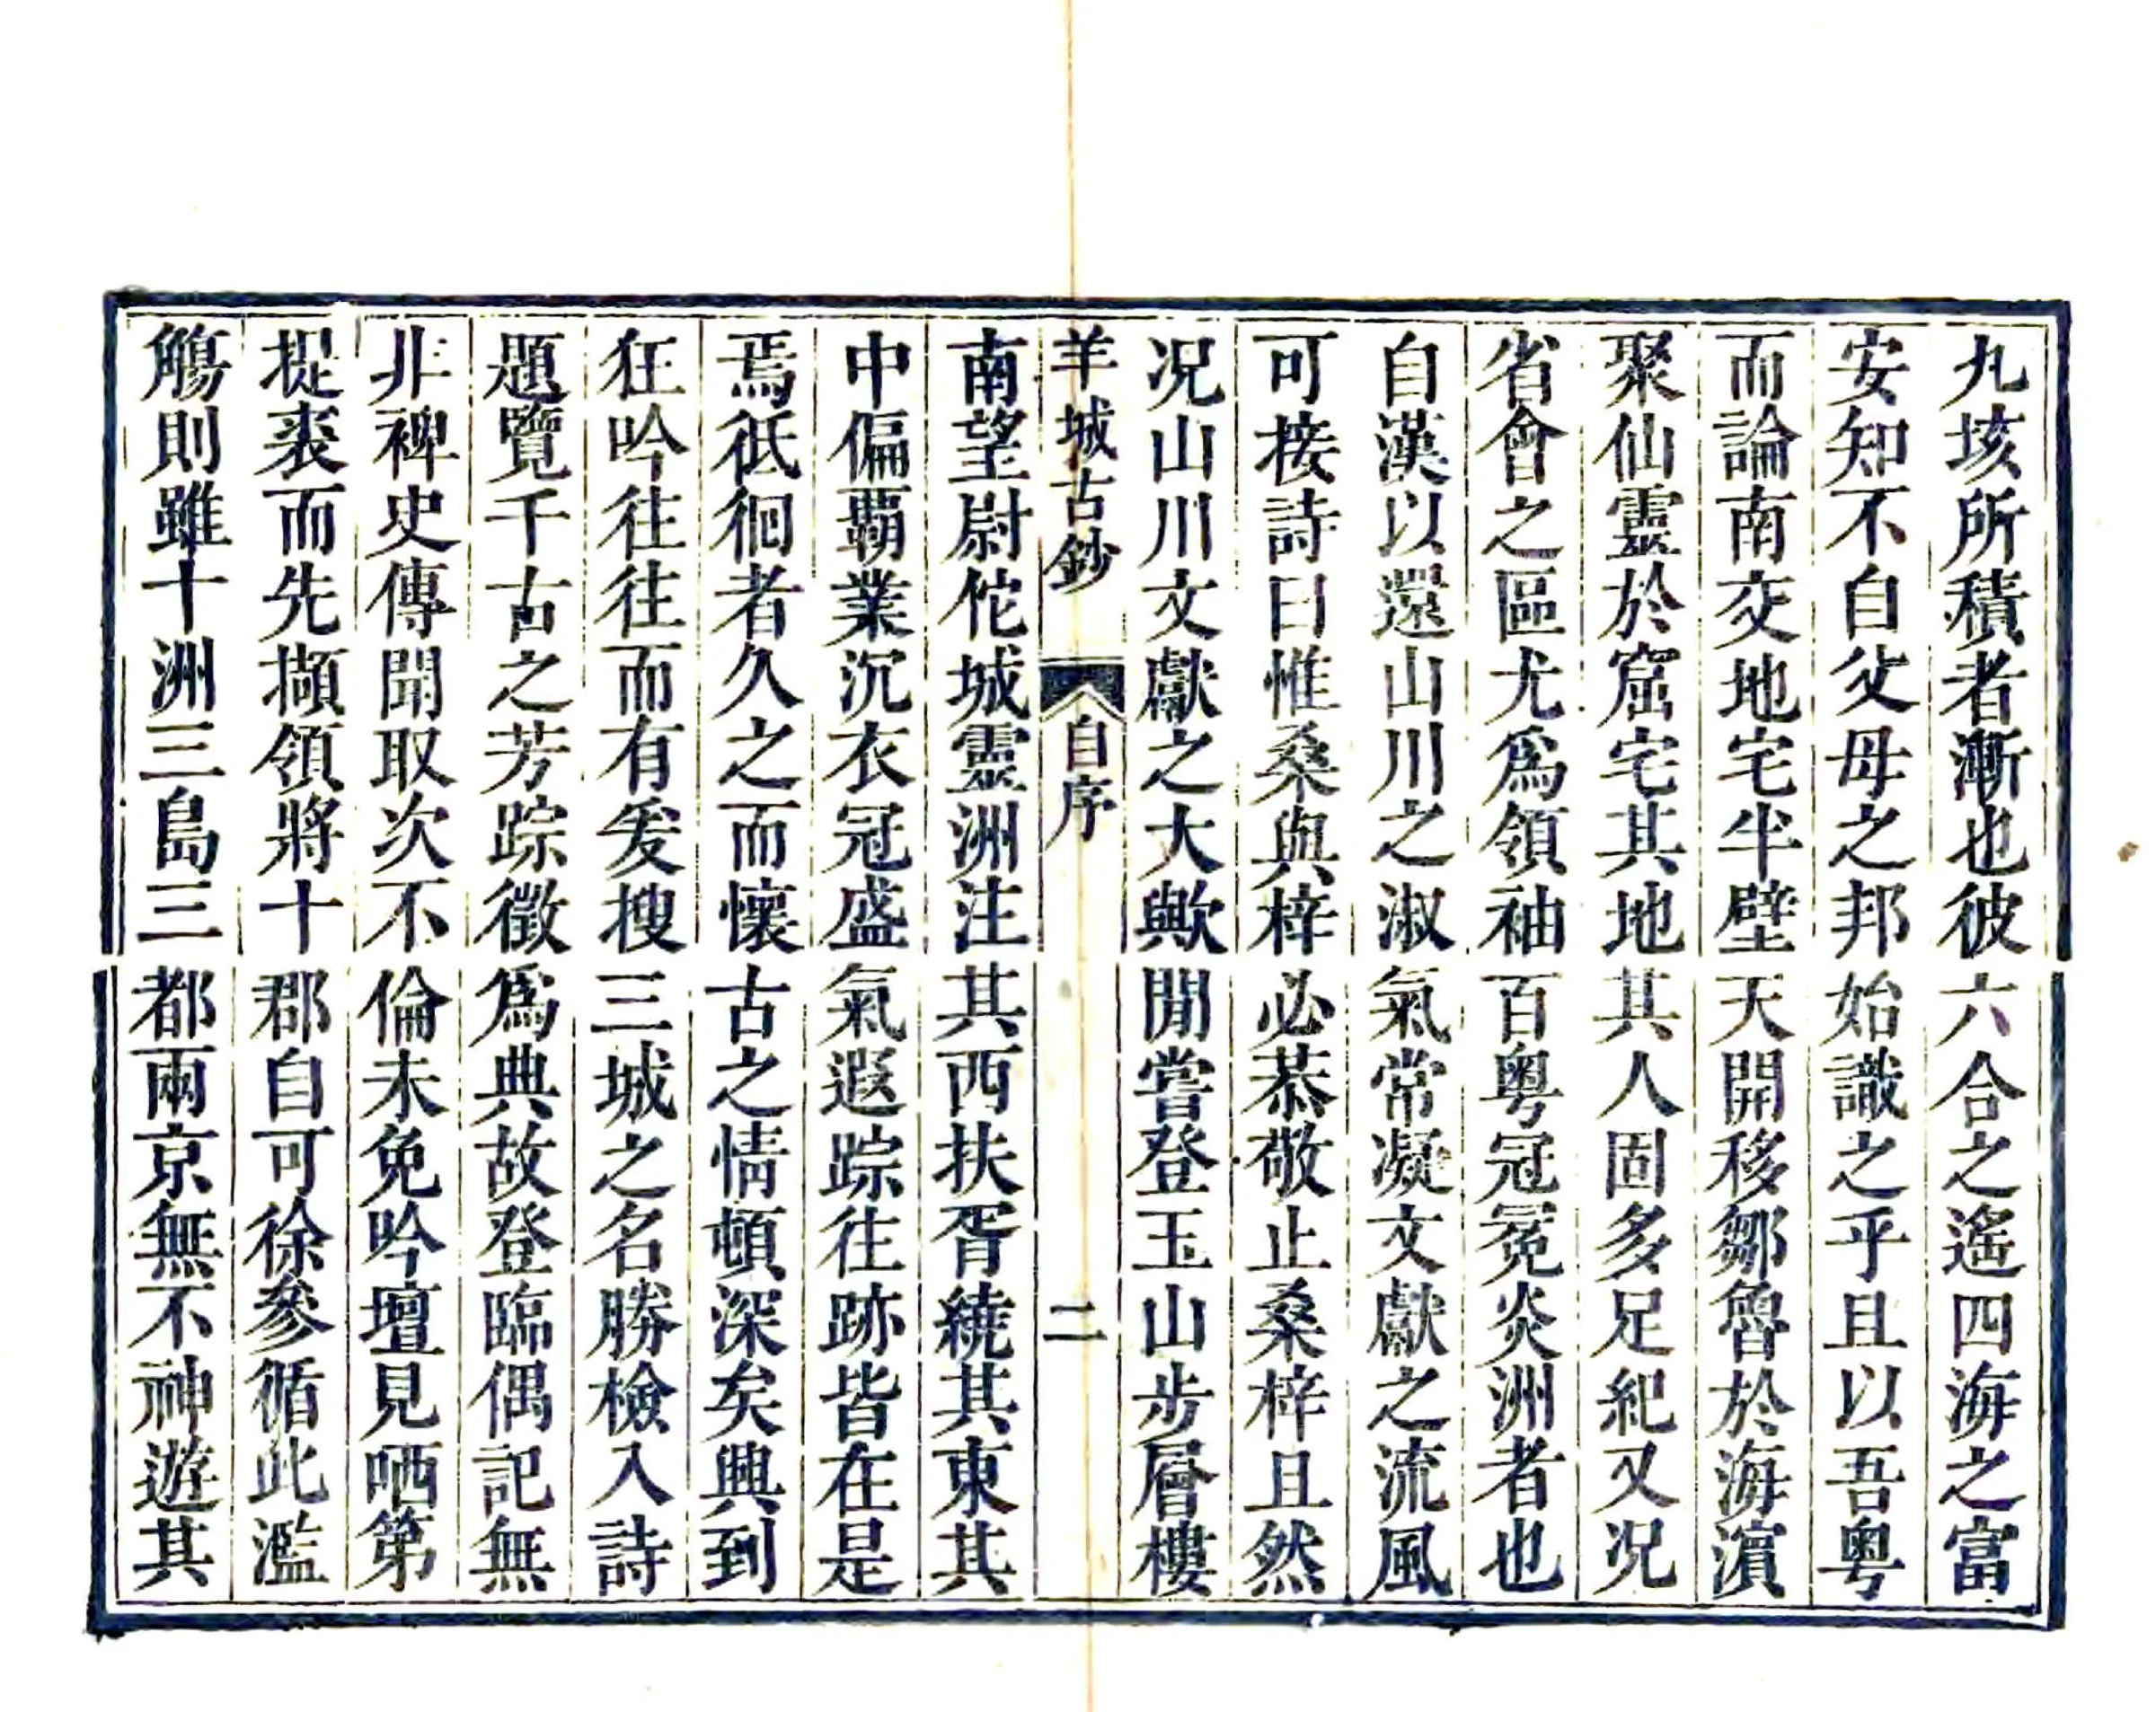 九垓所積者漸也彼六合之遙四海之富
安知不自父母之邦始識之乎且以吾粤
而論南交地宅半壁天開移鄒魯於海濵
聚仙靈於窟宅其地其人固多足紀又况
省會之區尤爲領袖百粤冠冕炎洲者也
自漢以還山川之淑氣常凝文獻之流風
可接詩曰惟桑與梓必恭敬止桑梓且然
况山川文獻之大歟閒嘗登玉山步層樓
羊城古鈔 自序 二
南望尉佗城靈洲注其西扶胥繞其東其
中偏覇業沉衣冠盛氣遐踪往跡皆在是
焉徘徊者久之而懷古之情頓深矣興到
狂吟往往而有爰搜三城之名勝檢入詩
題覽千古之芳踪徵爲典故登臨偶記無
非稗史傳聞取次不倫未免吟壇見哂第
提裘而先擷領將十郡自可徐參循此濫
觴則雖十洲三島三都兩京無不神遊其